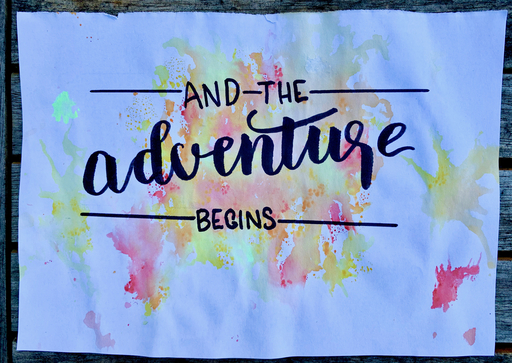 AND-THE
adventure
BEGINS